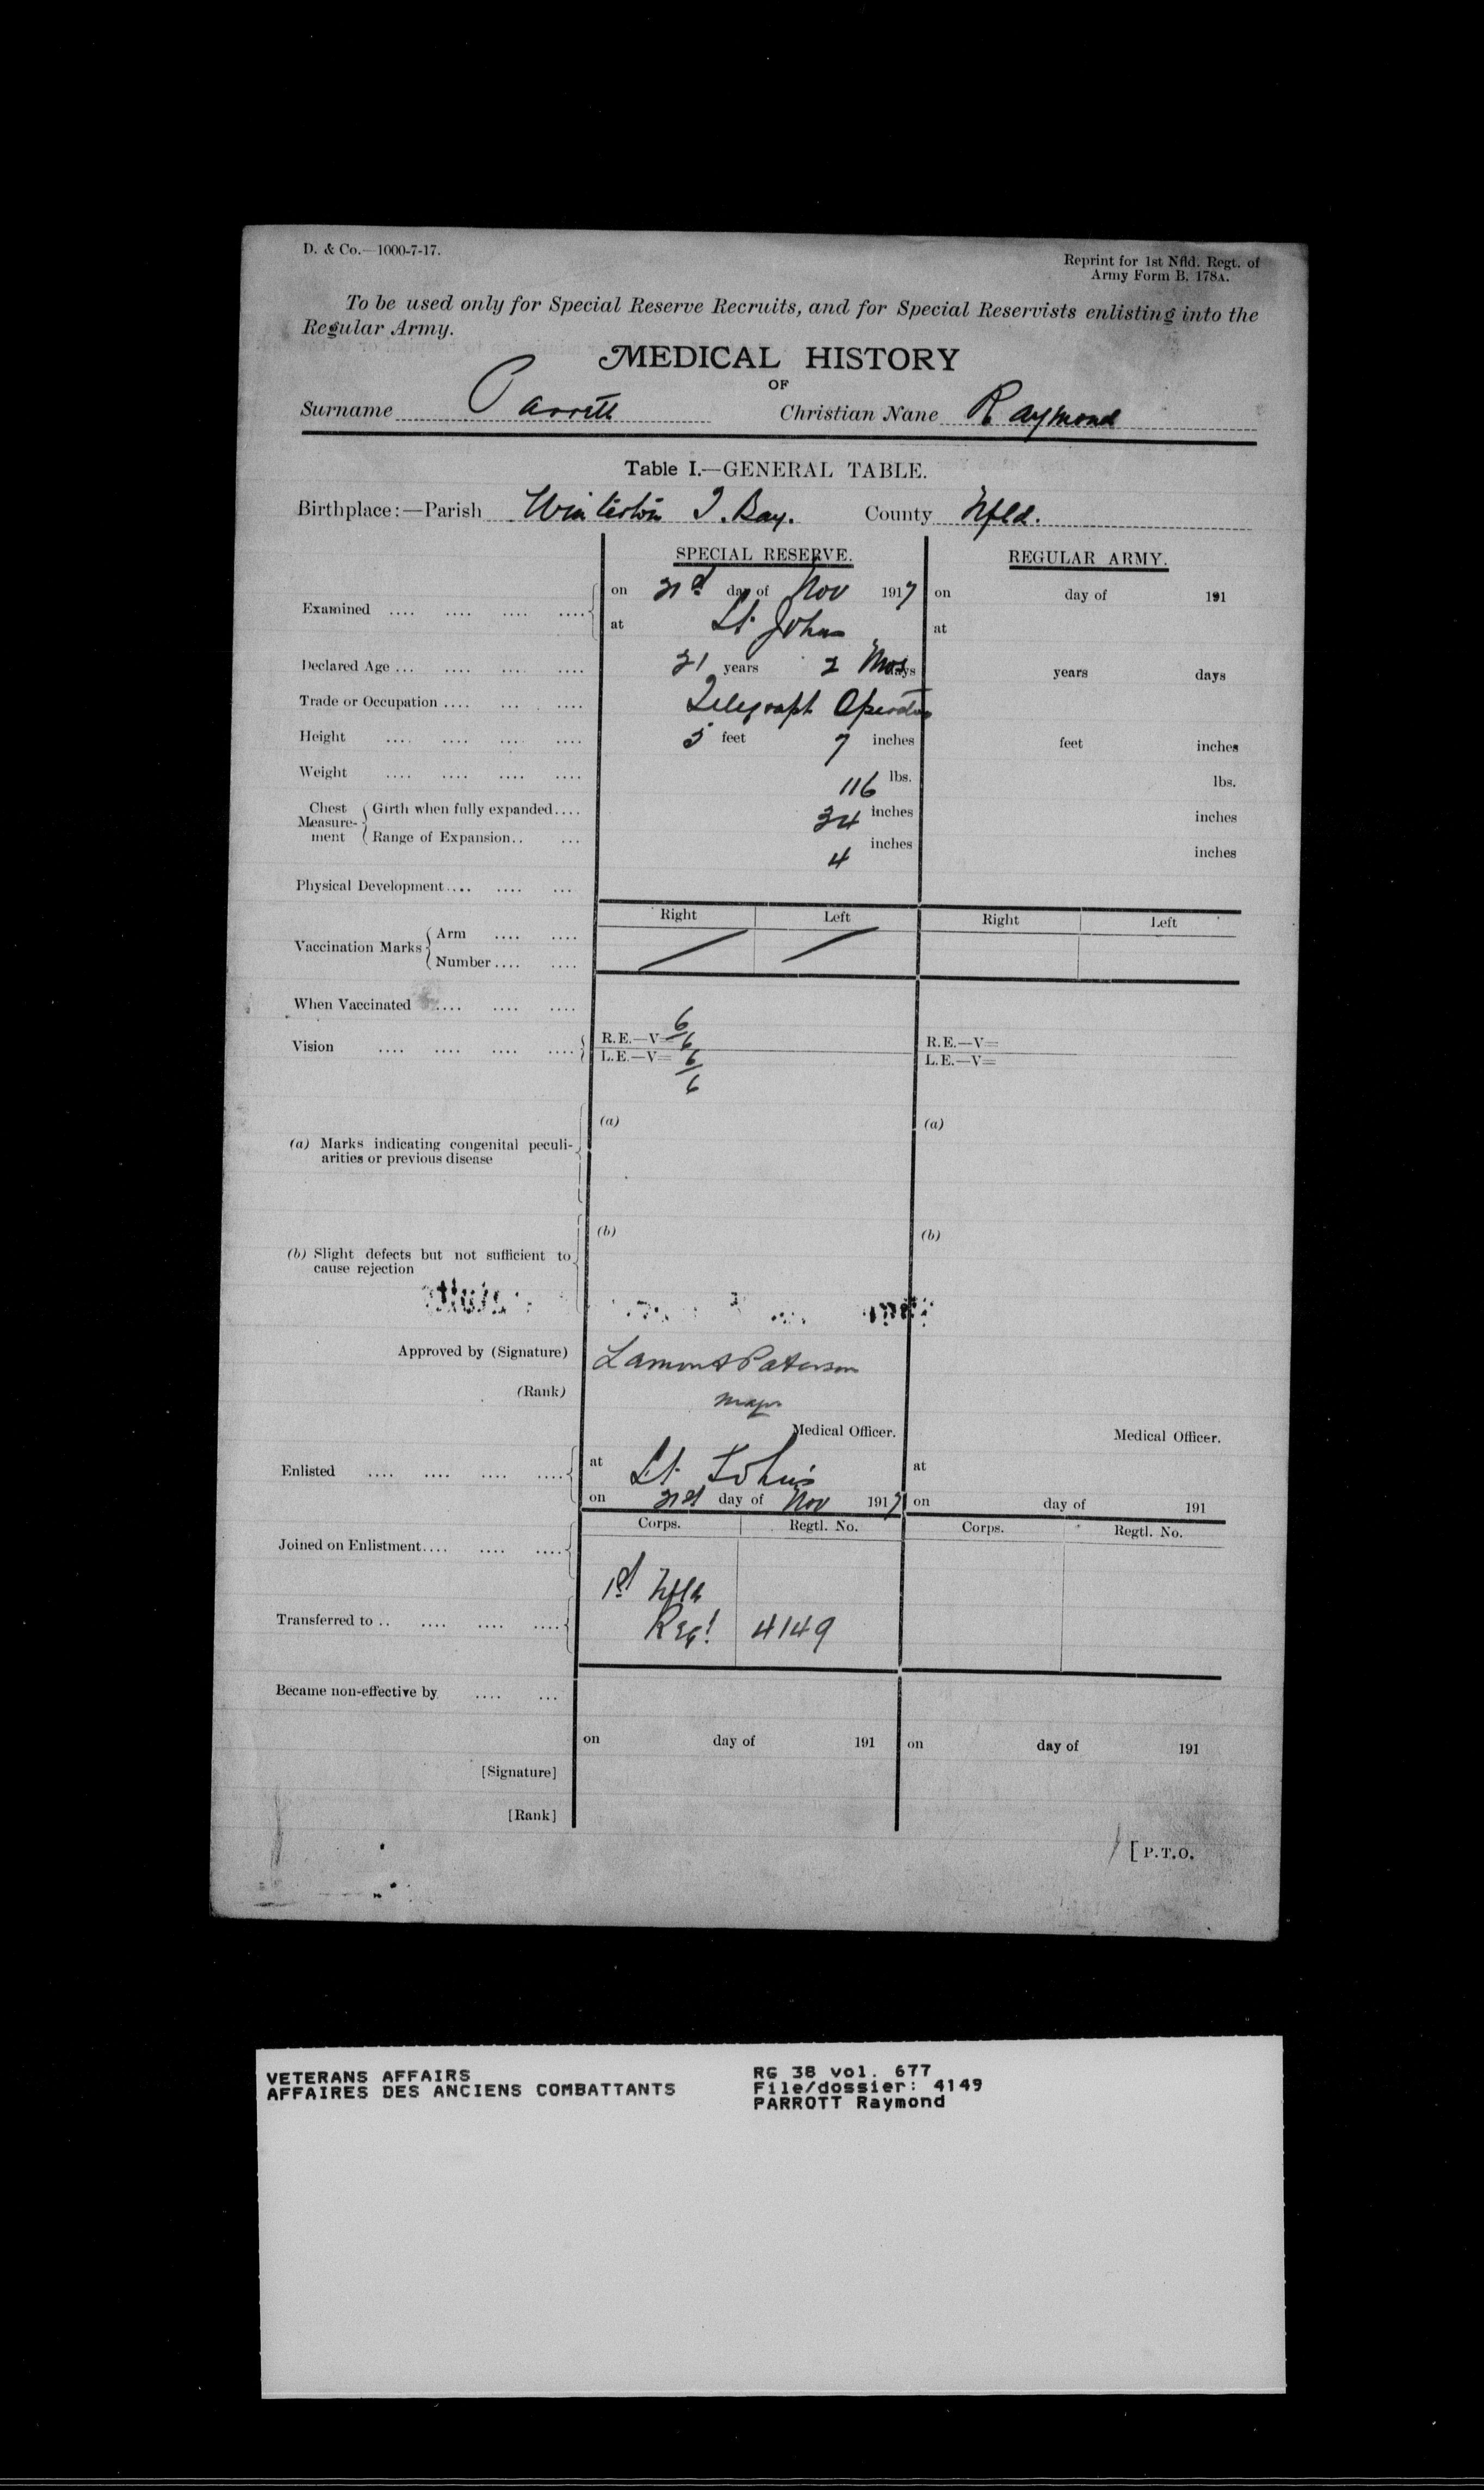 D. & Co.—1000-7-17.
Reprint for 1st Nfld. Regt. of
Army Form B. 178A.
To be used only for Special Reserve Recruits, and for Special Reservists enlisting into the
Regular Army.
MEDICAL HISTORY
OF
Surname Parrott Christian Name Raymond
Table I.—GENERAL TABLE.
Birthplace:—Parish Winterton T. Bay. County Nfld.
SPECIAL RESERVE. REGULAR ARMY.
Examined .... .... .... .... on 21st day of Nov 1917 on day of 191
at St Johns at
Declared Age ... .... .... .... 21 years 2 Mos days years days
Trade or Occupation .... ... .... Telegraph Operator
Height .... .... .... .... 5 feet 7 inches feet inches
Weight .... .... .... .... 116 lbs. lbs.
Chest Measurement Girth when fully expanded.... 34 inches inches
Range of Expansion.. ... 4 inches inches
Physical Development.... .... ...
Right Left Right Left
Vaccination Marks Arm .... ....
Number .... ....
When Vaccinated .... .... ....
Vision .... .... .... .... R.E.—V= 6/6 R.E.—V=
L.E.—V= 6/6 L.E.—V=
(a) (a)
(a) Marks indicating congenital peculi-
arities or previous disease
(b) (b)
(b) Slight defects but not sufficient to
cause rejection
Approved by (Signature) Lamont Paterson
(Rank) Major
Medical Officer. Medical Officer.
Enlisted .... .... .... .... at St. John's at
on 21st day of Nov 1917 on day of 191
Corps. Regtl. No. Corps. Regtl. No.
Joined on Enlistment.... .... ....
1st Nfld
Transferred to .. .... .... .... Regt 4149
Became non-effective by .... ...
on day of 191 on day of 191
[Signature]
[Rank]
[P.T.O.
VETERANS AFFAIRS RG 38 vol. 677
AFFAIRES DES ANCIENS COMBATTANTS File/dossier: 4149
PARROTT Raymond